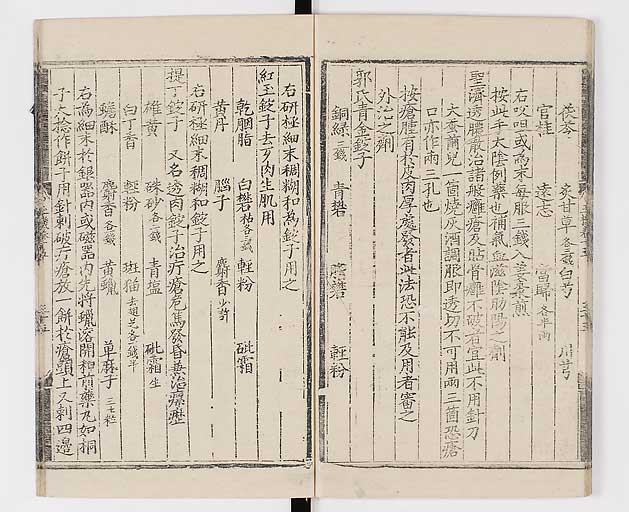 茯苓 炙甘草各三錢 白芍 川芎
官桂 遠志 當歸各半兩
右㕮咀或為末每服三錢入薑棗煎
按此手太陰例藥也補氣血滋陰助陽之劑
聖濟透膿散治諸般癰瘡及貼骨癰不破者宜此不用針刀
大蚕繭兒一箇燒灰酒調服即透切不可用兩三箇恐瘡
口亦作兩三孔也
按瘡腫有於皮肉厚處發者此法恐不能及用者審之
外治之劑
郭氏青金錠子
銅綠三錢 青礬 膽礬 輕粉
右研極細末稠糊和為錠子用之
紅玉錠子去歹肉生肌用
乾胭脂 白礬枯各三錢 輕粉 砒霜
黃丹 腦子 麝香少許
右研極細末稠糊和錠子用之
提丁錠子 又名透肉錠子治疔瘡危篤發昏兼治瘰癧
雄黃 朱砂各三錢 青塩 砒霜生
白丁香 輕粉 斑猫 草麻子三十粒
蟾酥 麝香各一錢 黃蠟
右為細末於銀器內或磁器內先將蠟溶開和前藥丸如桐
子大捻作餅子用針刺破疔瘡放一餅於瘡頭上又刺四邊